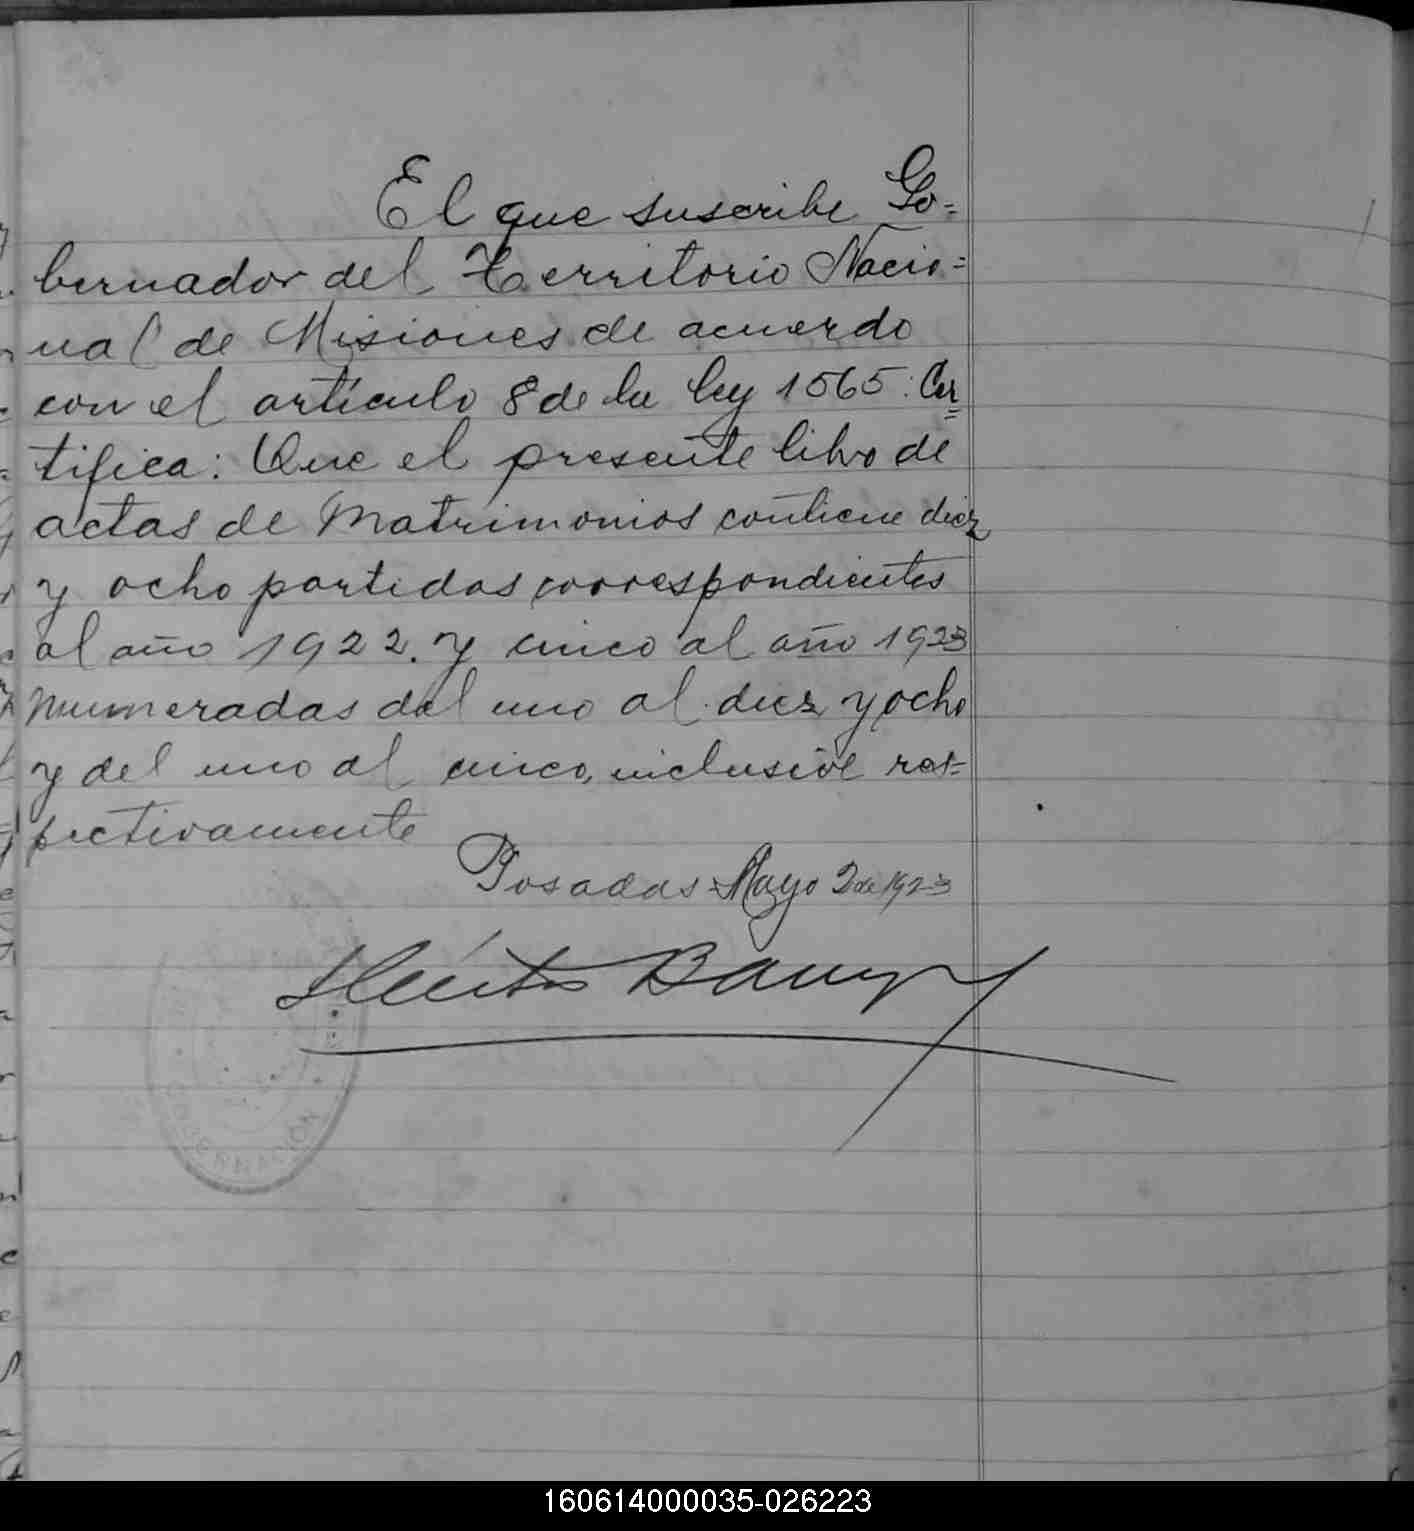 El que suscribe Go=
bernador del Territorio Nacio=
nal de Misiones de acuerdo
con el artículo 8 de la ley 1565: Cer=
tifica: Que el presente libro de
actas de Matrimonios contiene diez
y ocho partidas correspondientes
al año 1922. y cinco al año 1923
numeradas del uno al diez y ocho
y del uno al cinco, inclusive res=
pectivamente
Posadas Mayo 2 de 1923
Héctor Barreyro
GOBERNACIÓN
160614000035-026223